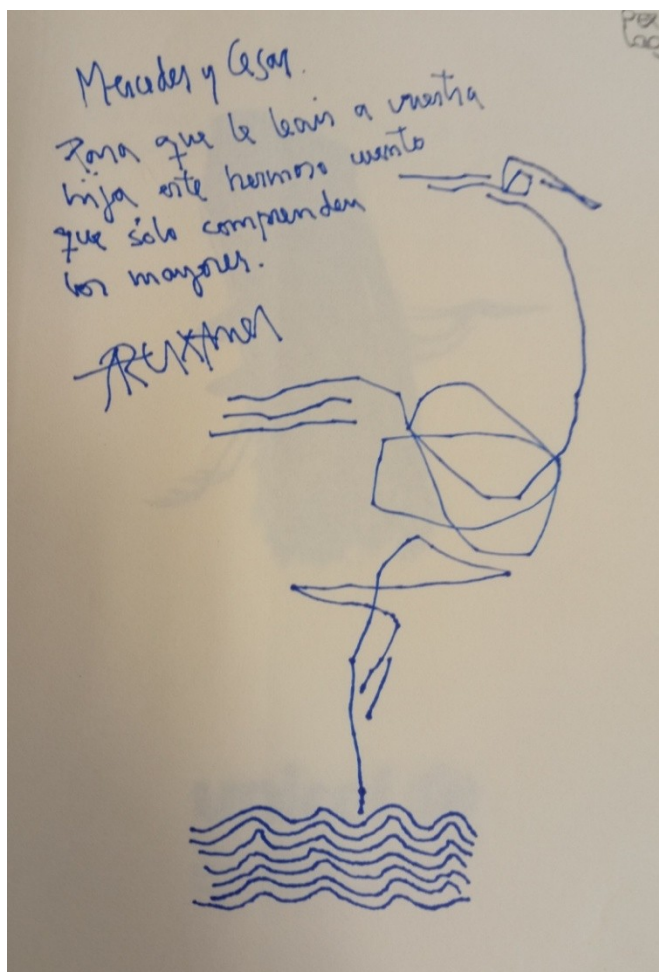 Mercedes y Cesar.
Para que le leais a vuestra
hija este hermoso cuento
que sólo comprenden
los mayores.